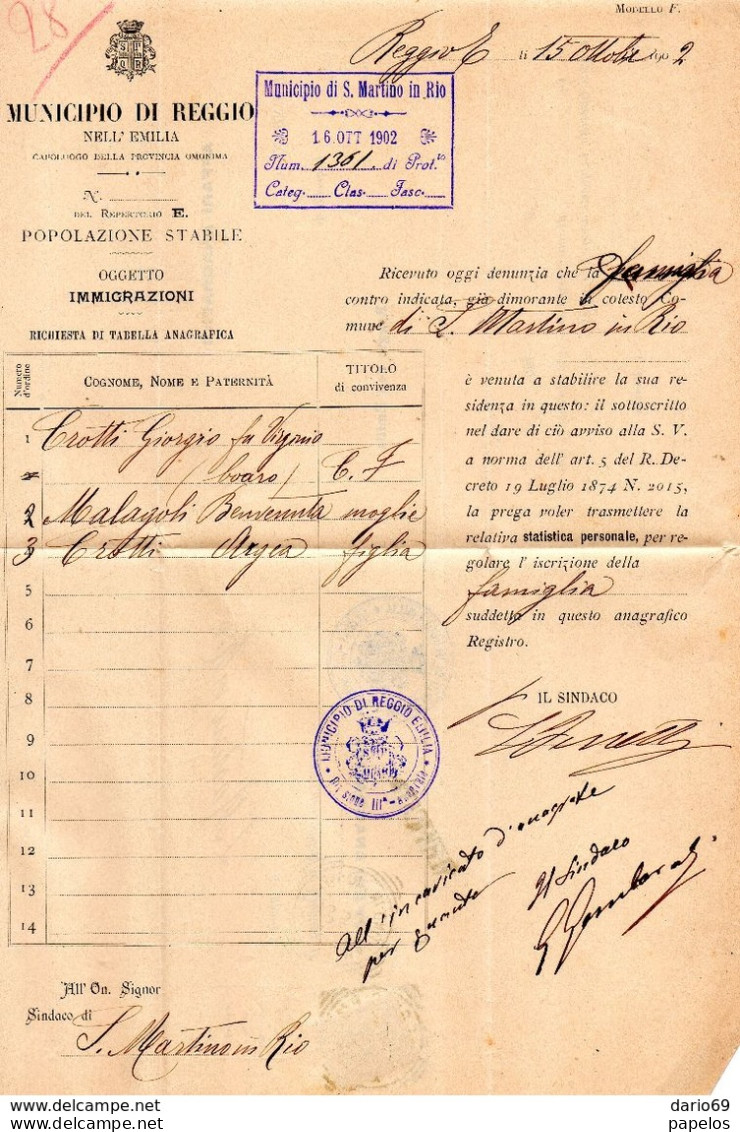 28
MODELLO F.
Reggio E li 15 Ottobre 1902
S P
Q R
MUNICIPIO DI REGGIO
NELL'EMILIA
CAPOLUOGO DELLA PROVINCIA OMONIMA
Municipio di S. Martino in Rio
16. OTT 1902
Num. 1361. di Prot.
Categ. Clas. Fasc.
N.
DEL REPERTORIO E.
POPOLAZIONE STABILE
OGGETTO
IMMIGRAZIONI
RICHIESTA DI TABELLA ANAGRAFICA
Numero d'ordine
COGNOME, NOME E PATERNITÀ
TITOLO
di convivenza
1 Crotti Giorgio fu Virginio
(boaro) C. F
2 Malagoli Benvenuta moglie
3 Crotti Argea figlia
5
6
7
8
9
10
11
12
13
14
Ricevuto oggi denunzia che la famiglia
contro indicata, già dimorante in cotesto Co-
mune di S. Martino in Rio
è venuta a stabilire la sua re-
sidenza in questo: il sottoscritto
nel dare di ciò avviso alla S. V.
a norma dell' art. 5 del R. De-
creto 19 Luglio 1874 N. 2015,
la prega voler trasmettere la
relativa statistica personale, per re-
golare l' iscrizione della
famiglia
suddetta in questo anagrafico
Registro.
IL SINDACO
MUNICIPIO DI REGGIO EMILIA
Divisione IIIa - Anagrafe
All'incaricato d'anagrafe
per
Il Sindaco
All' On. Signor
Sindaco di
S. Martino in Rio
dario69
papelos